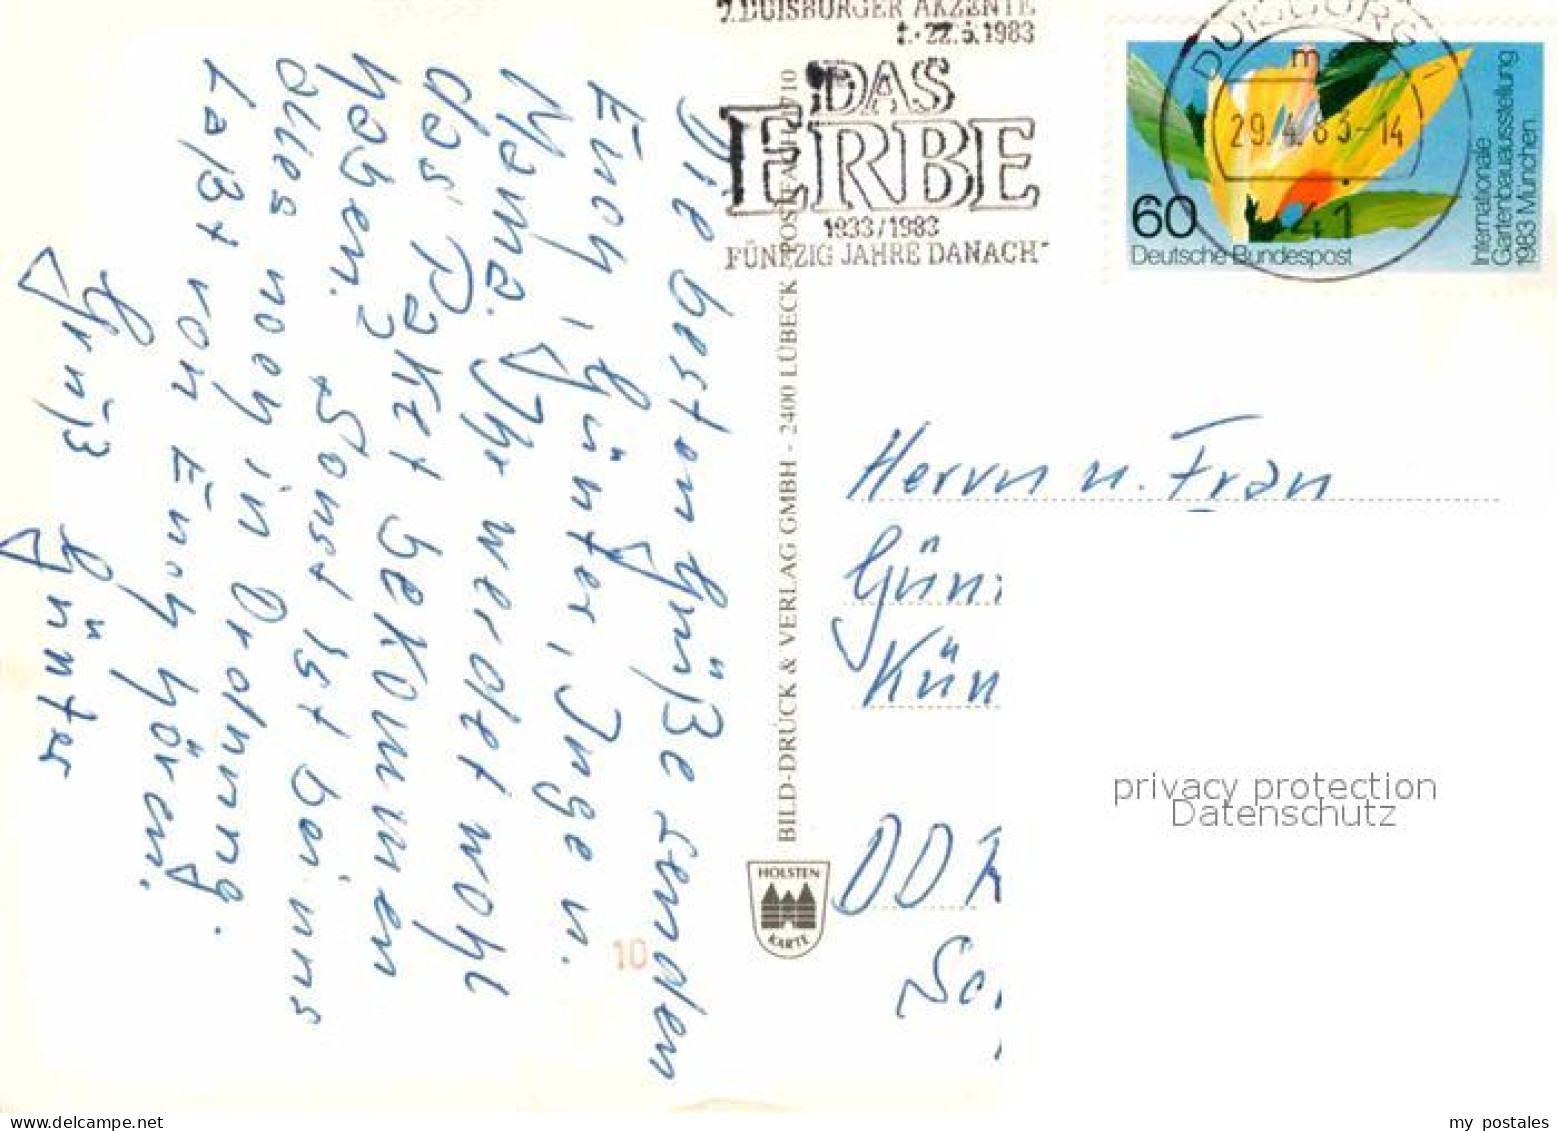 Die besten Grüße senden
Euch, Günter, Inge u.
Mama. Ihr werdet wohl
das Paket bekommen
haben? Sonst ist bei uns
alles noch in Ordnung.
Laßt von Euch hören.
Gruß Günter
7. DUISBURGER AKZENTE
22.5.1983
DAS
ERBE
1933/1983
FÜNFZIG JAHRE DANACH
DUISBURG 1
29.4.83-14
41
60
Deutsche Bundespost
Internationale
Gartenbauausstellung
1983 München
BILD-DRUCK & VERLAG GMBH - 2400 LÜBECK
HOLSTEN
KARTE
10
Herrn u. Frau
privacy protection
Datenschutz
my postales